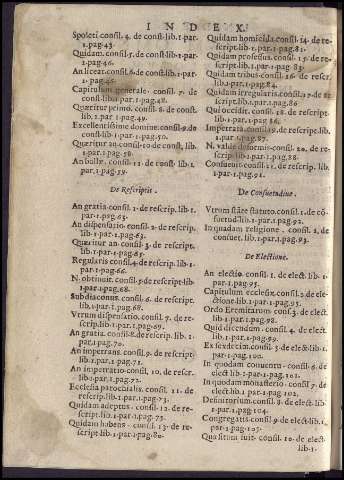 INDEX.
Spoleti consil. 4. de const. lib. 1. par.
1. pag. 43.
Quidam. consil. 5. de const. lib. 1. par.
1. pag. 46.
An liceat. consil. 6. de const. lib. 1. par.
1. pag. 46.
Capitulum generale. consil. 7. de
const. lib. 1. par. 1. pag. 48.
Quæritur primo. consil. 8. de const.
lib. 1. par. 1. pag. 49.
Excellentissime domine. consil. 9. de
const. lib. 1. par. 1. pag. 50.
Quæritur an. consil. 10. de const. lib.
1. par. 1. pag. 58.
An bullæ. consil. 11. de const. lib. 1.
par. 1. pag. 59.
De Rescriptis.
An gratia. consil. 1. de rescrip. lib. 1.
par. 1. pag. 63.
An dispensatio. consil. 2. de rescrip.
lib. 1. par. 1. pag. 63.
Quæritur an. consil. 3. de rescript.
lib. 1. par. 1. pag. 65.
Regularis consil. 4. de rescrip. lib. 1.
par. 1. pag. 66.
N. obtinuit. consil. 5. de rescript. lib.
1. par. 1. pag. 68.
Subdiaconus. consil. 6. de rescript.
lib. 1. par. 1. pag. 68.
Vtrum dispensatio. consil. 7. de re-
scrip. lib. 1. par. 1. pag. 69.
An gratia. consil. 8. de rescript. lib. 1.
par. 1. pag. 70.
An imperrans. consil. 9. de rescript.
lib. 1. par. 1. pag. 71.
An imperratio. consil. 10. de rescr.
lib. 1. par. 1. pag. 72.
Ecclesia parochialis. consil. 11. de
rescrip. lib. 1. par. 1. pag. 73.
Quidam adeptus. consil. 12. de re-
script. lib. 1. par. 1. pag. 75.
Quidam habens. consil. 13. de re-
script. lib. 1. par. 1. pag. 80.
Quidam homicida. consil. 14. de re-
script. lib. 1. par. 1. pag. 81.
Quidam professus. consil. 15. de re-
script. lib. 1. par. 1. pag. 83.
Quidam tribus. consil. 16. de rescr.
lib. 1. par. 1. pag. 84.
Quidam irregularis. consil. 17. de re-
script. lib. 1. par. 1. pag. 86
Qui occidit. consil. 18. de rescript.
lib. 1. par. 1. pag. 86.
Imperrata. consil. 19. de rescript. lib.
1. par. 1. pag. 87.
N. valde deformis. consil. 20. de re-
scrip. lib. 1. par. 1. pag. 88.
Consueuit. consil. 21. de rescrip. lib.
1. par. 1. pag. 91.
De Consuetudine.
Vtrum stare statuto. consil. 1. de cõ-
suetud. lib. 1. par. 1. pag. 92.
In quadam religione. consil. 2. de
consuet. lib. 1. par. 1. pag. 93.
De Electione.
An electio. consil. 1. de elect. lib. 1.
par. 1. pag. 95.
Capitulum ecclesiæ. consil. 2. de ele-
ctione. lib. 1. par. 1. pag. 95.
Ordo Eremitarum. cons. 3. de elect.
lib. 1. par. 1. pag. 98.
Quid dicendum. consil. 4. de elect.
lib. 1. par. 1. pag. 99.
Ex sexdecim. consil. 5. de elect. lib. 1.
par. 1. pag. 100.
In quodam conuentu. consil. 6. de
elect. lib. 1. par. 1. pag. 101.
In quodam monasterio. consil. 7. de
elect. lib. 1. par. 1. pag. 102.
Definitorium. consil. 8. de elect. lib.
1. par. 1. pag. 104.
Congregatis. consil. 9. de elect. lib. 1.
par. 1. pag. 105.
Quæsitum fuit. consil. 10. de elect.
lib. 1.